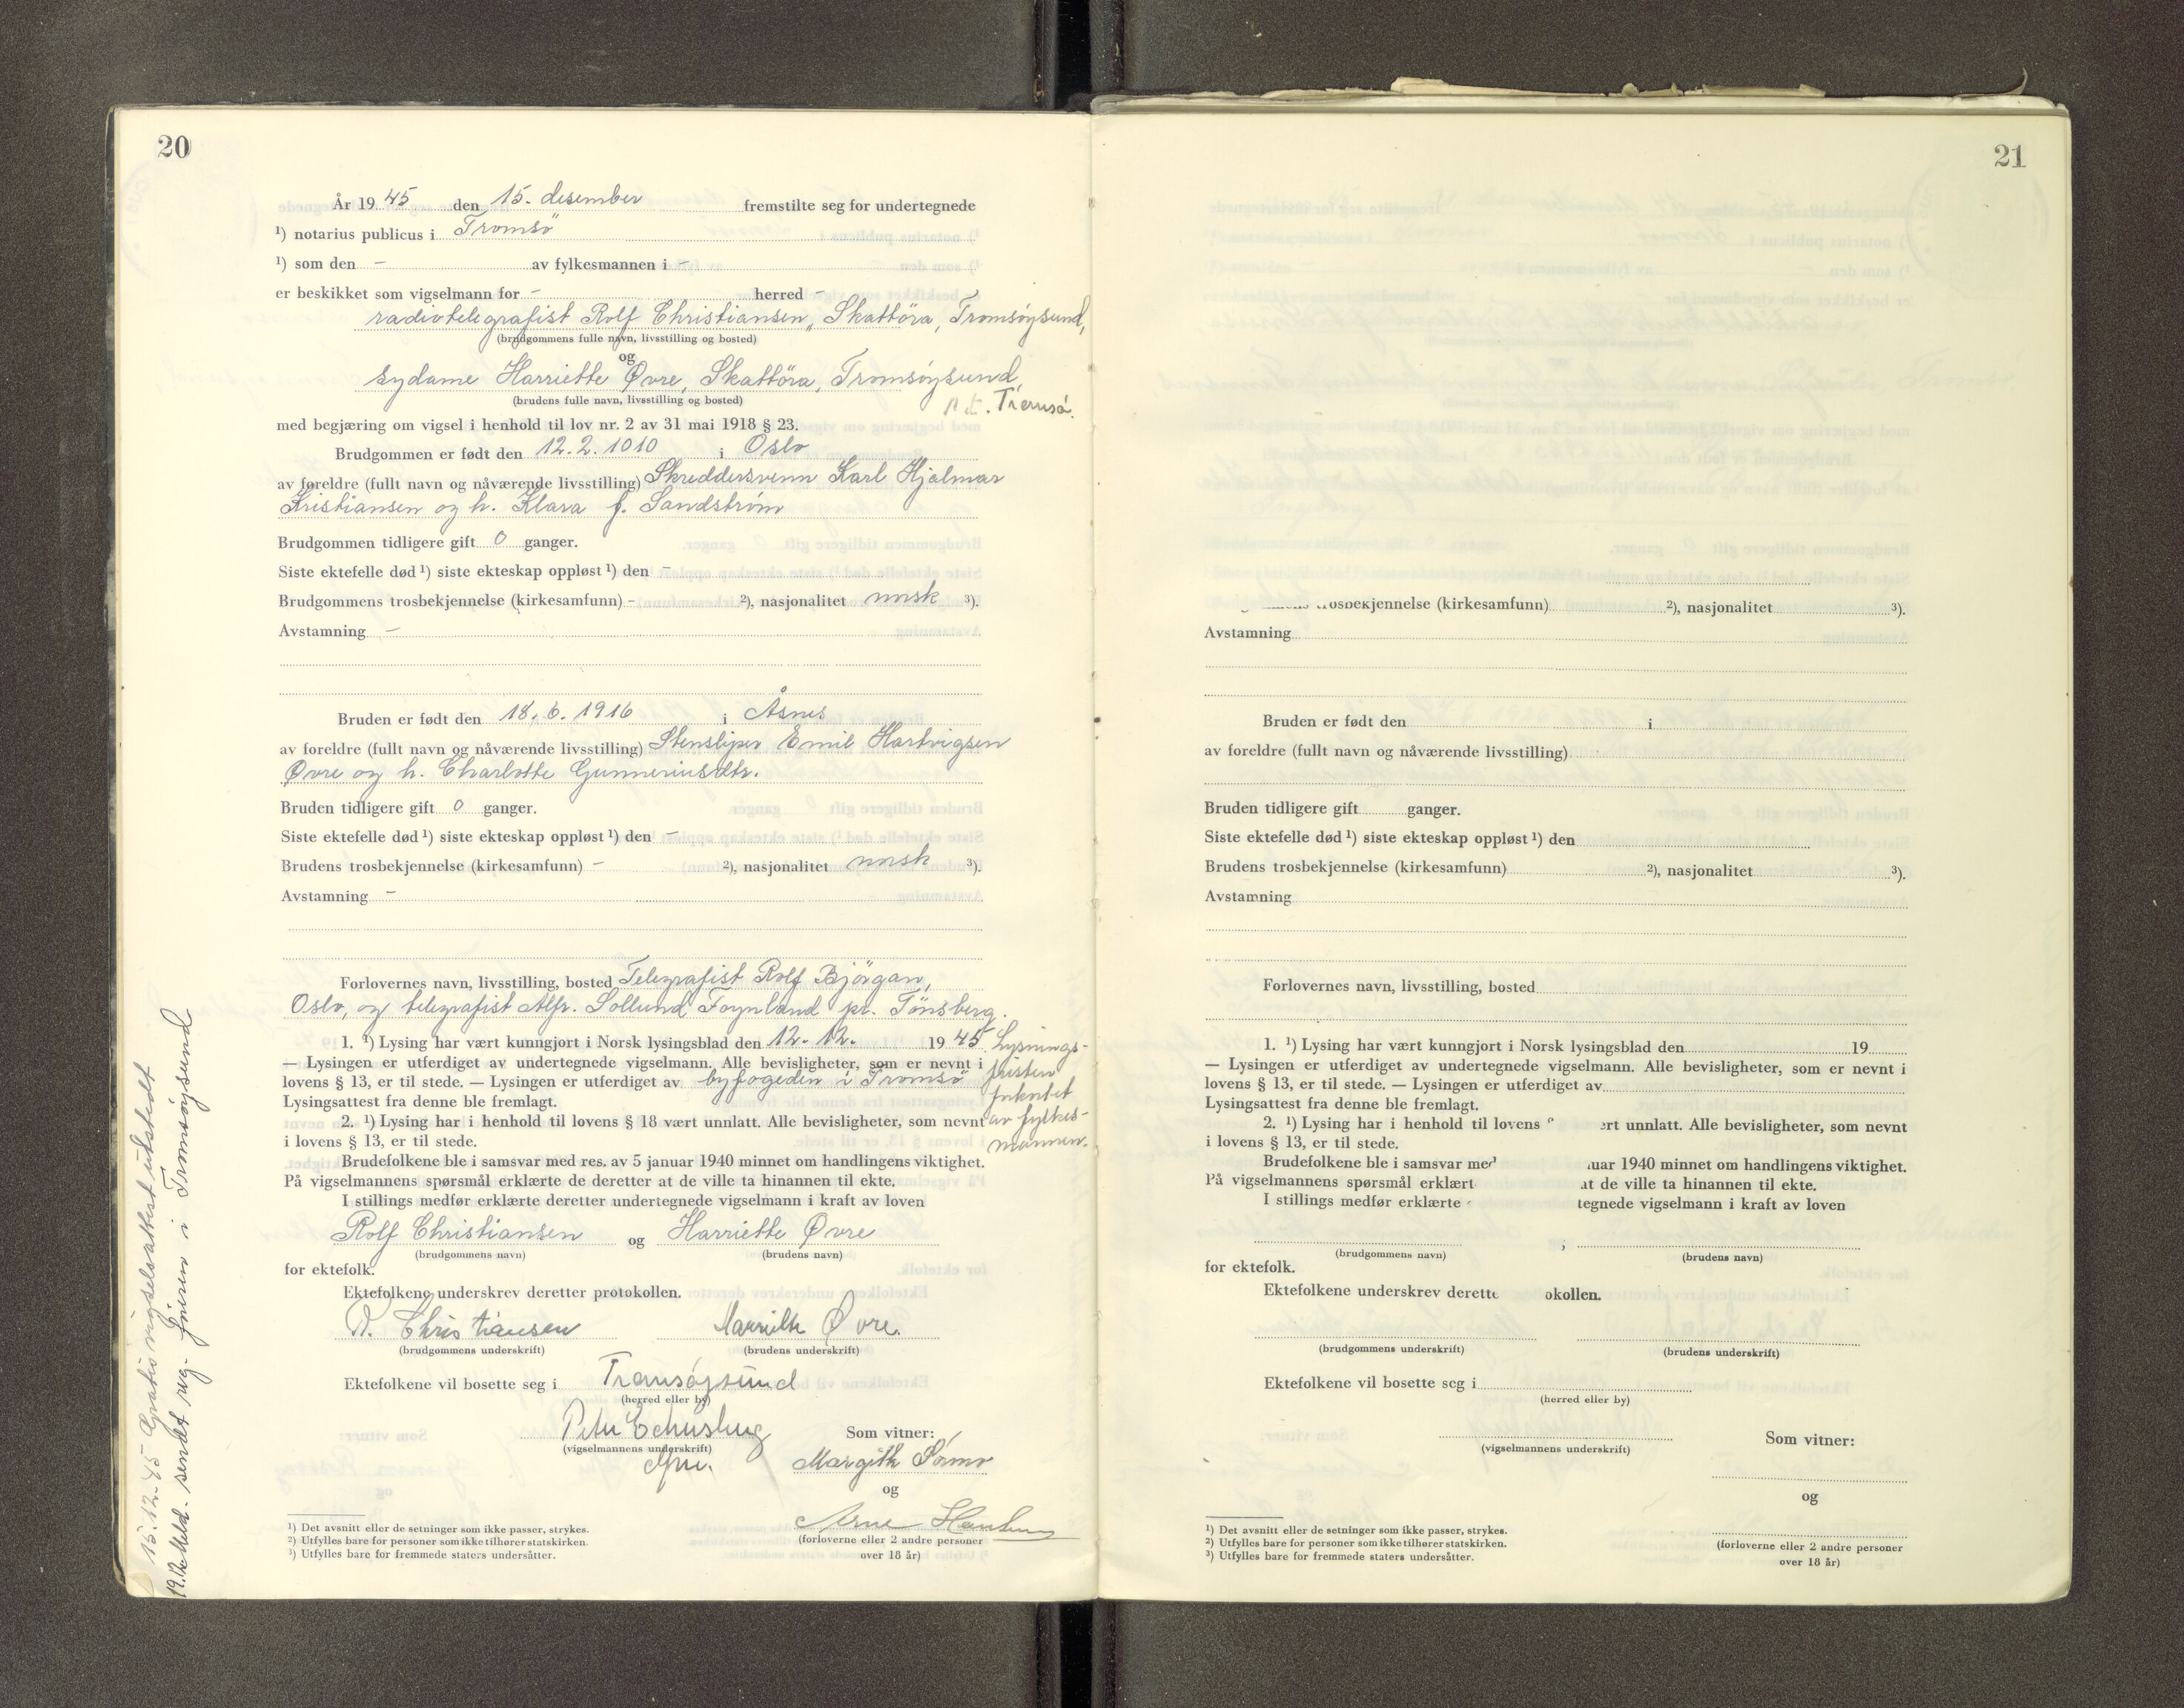 20
År 19 45 den 15. desember fremstilte seg for undertegnede
¹) notarius publicus i Tromsö
¹) som den – av fylkesmannen i –
er beskikket som vigselmann for – herred –
radiotelegrafist Rolf Christiansen, Skattöra, Tromsöysund,
(brudgommens fulle navn, livsstilling og bosted)
og
sydame Harriette Øvre, Skattöra, Tromsöysund,
(brudens fulle navn, livsstilling og bosted)
p.t. Tromsö.
med begjæring om vigsel i henhold til lov nr. 2 av 31 mai 1918 § 23.
Brudgommen er født den 12.2.1010 i Oslo
av foreldre (fullt navn og nåværende livsstilling) Skreddersvenn Karl Hjalmar
Kristiansen og h. Klara f. Sandstrøm
Brudgommen tidligere gift 0 ganger.
Siste ektefelle død ¹) siste ekteskap oppløst ¹) den –
Brudgommens trosbekjennelse (kirkesamfunn) – ²), nasjonalitet norsk ³).
Avstamning –
Bruden er født den 18.6.1916 i Åsnes
av foreldre (fullt navn og nåværende livsstilling) Stensliper Emil Hartvigsen
Øvre og h. Charlotte Gunneriusdtr.
Bruden tidligere gift 0 ganger.
Siste ektefelle død ¹) siste ekteskap oppløst ¹) den –
Brudens trosbekjennelse (kirkesamfunn) – ²), nasjonalitet norsk ³).
Avstamning –
Forlovernes navn, livsstilling, bosted Telegrafist Rolf Bjørgan,
Oslo, og telegrafist Alfr. Sollund Föynland pr. Tönsberg.
1. ¹) Lysing har vært kunngjort i Norsk lysingsblad den 12. 12. 19 45. Lysnings-
— Lysingen er utferdiget av undertegnede vigselmann. Alle bevisligheter, som er nevnt i
fristen
lovens § 13, er til stede. — Lysingen er utferdiget av byfogeden i Tromsö
forkortet
Lysingsattest fra denne ble fremlagt.
av fylkes-
2. ¹) Lysing har i henhold til lovens § 18 vært unnlatt. Alle bevisligheter, som nevnt
mannen.
i lovens § 13, er til stede.
Brudefolkene ble i samsvar med res. av 5 januar 1940 minnet om handlingens viktighet.
På vigselmannens spørsmål erklærte de deretter at de ville ta hinannen til ekte.
I stillings medfør erklærte deretter undertegnede vigselmann i kraft av loven
Rolf Christiansen og Harriette Øvre
(brudgommens navn) (brudens navn)
for ektefolk.
Ektefolkene underskrev deretter protokollen.
R. Christiansen Harriette Øvre.
(brudgommens underskrift) (brudens underskrift)
Ektefolkene vil bosette seg i Tromsöysund
(herred eller by)
(vigselmannens underskrift) Som vitner:
Margith
og
Arne
(forloverne eller 2 andre personer
over 18 år)
¹) Det avsnitt eller de setninger som ikke passer, strykes.
²) Utfylles bare for personer som ikke tilhører statskirken.
³) Utfylles bare for fremmede staters undersåtter.
15.12.45 Gratis vigselsattest utstedt
19.12. Meld. sendt reg. föreren i Tromsöysund
21
trosbekjennelse (kirkesamfunn) ²), nasjonalitet ³).
Avstamning
Bruden er født den i
av foreldre (fullt navn og nåværende livsstilling)
Bruden tidligere gift ganger.
Siste ektefelle død ¹) siste ekteskap oppløst ¹) den
Brudens trosbekjennelse (kirkesamfunn) ²), nasjonalitet ³).
Avstamning
Forlovernes navn, livsstilling, bosted
1. ¹) Lysing har vært kunngjort i Norsk lysingsblad den 19
— Lysingen er utferdiget av undertegnede vigselmann. Alle bevisligheter, som er nevnt i
lovens § 13, er til stede. — Lysingen er utferdiget av
Lysingsattest fra denne ble fremlagt.
2. ¹) Lysing har i henhold til lovens ert unnlatt. Alle bevisligheter, som nevnt
i lovens § 13, er til stede.
Brudefolkene ble i samsvar med uar 1940 minnet om handlingens viktighet.
På vigselmannens spørsmål erklært at de ville ta hinannen til ekte.
I stillings medfør erklærte tegnede vigselmann i kraft av loven
(brudgommens navn) (brudens navn)
for ektefolk.
Ektefolkene underskrev derette okollen.
(brudgommens underskrift) (brudens underskrift)
Ektefolkene vil bosette seg i
(herred eller by)
(vigselmannens underskrift) Som vitner:
og
(forloverne eller 2 andre personer
over 18 år)
¹) Det avsnitt eller de setninger som ikke passer, strykes.
²) Utfylles bare for personer som ikke tilhører statskirken.
³) Utfylles bare for fremmede staters undersåtter.